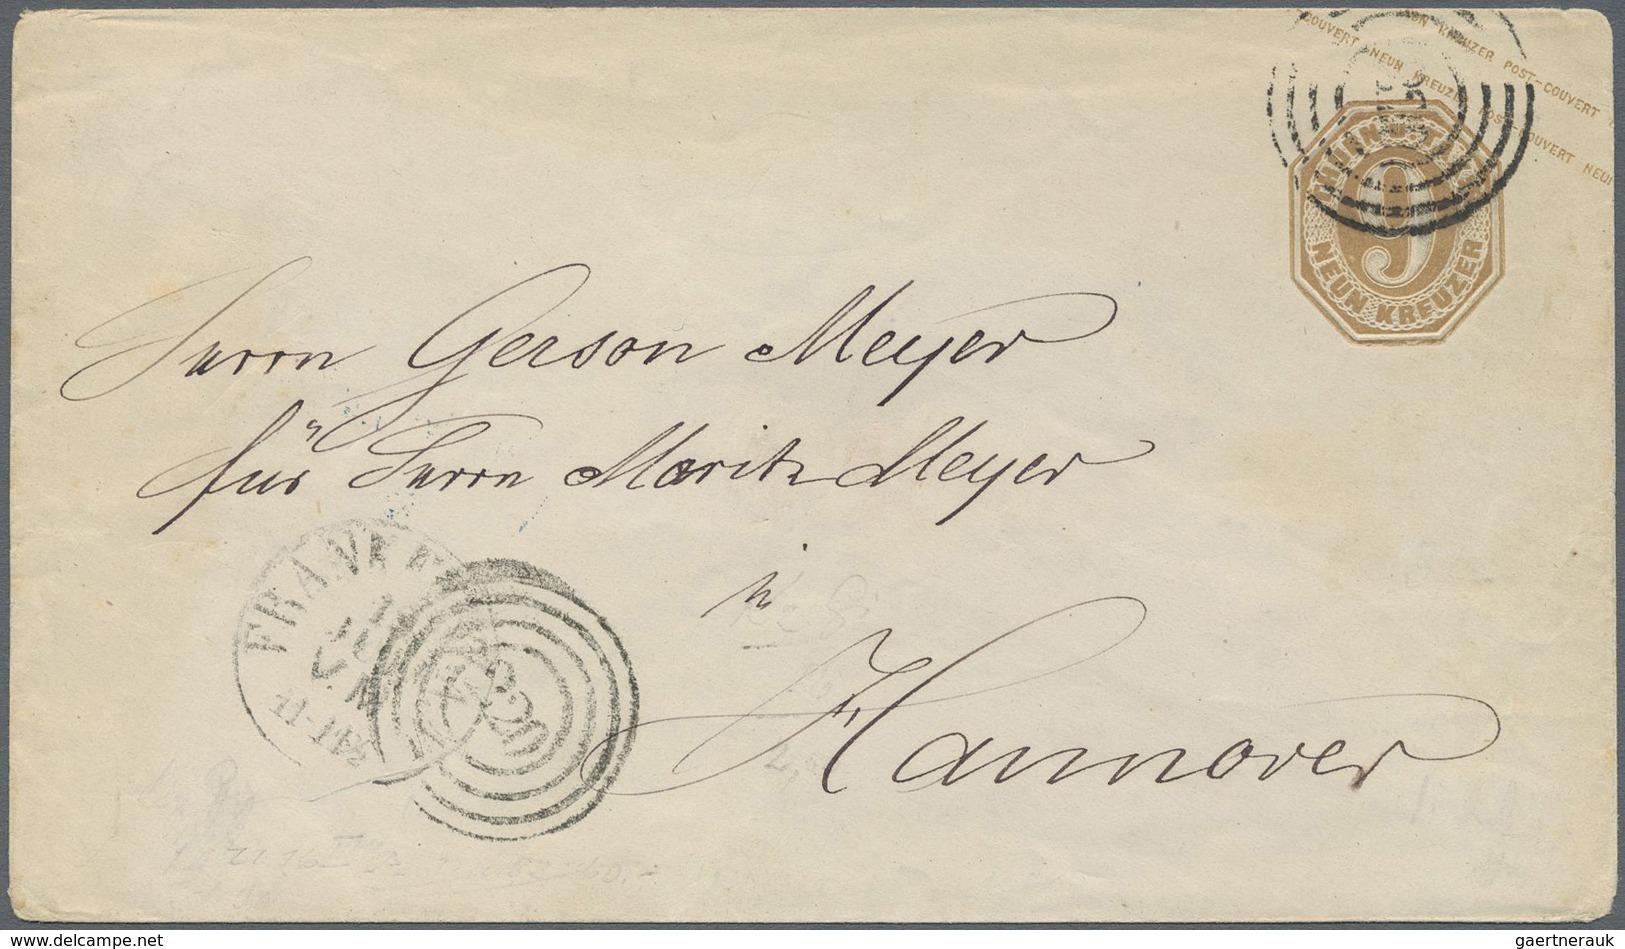 UN KREUZER POST-COUVERT
COUVERT NEUN KREUZER POST-COUVERT NEUN
THURN U. TAXIS
9
NEUN KREUZER
Herrn Gerson Meyer
für Herrn Moritz Meyer
in
Hannover
FRANKF
220
delcampe.net
gaertnerauk